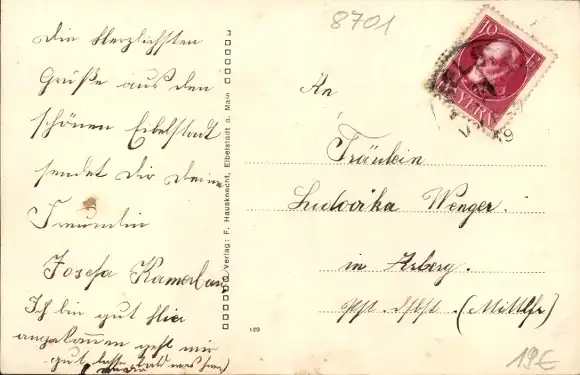 8701
Die Herzlichsten
Grüße aus den
schönen Eibelstadt
sendet dir deine
Freundin
Josefa
Ich bin gut hier
angekommen geht mir
gut
Verlag: F. Hausknecht, Eibelstadt a. Main
129
10
BAYERN
An
Fräulein
Ludovika Wenger.
in Arberg.
(Mittelfr)
19€